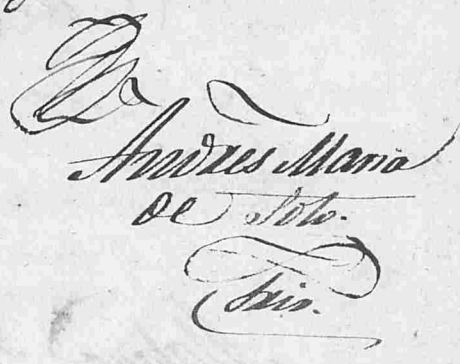 Andres Maria
de Soto.
Srio.